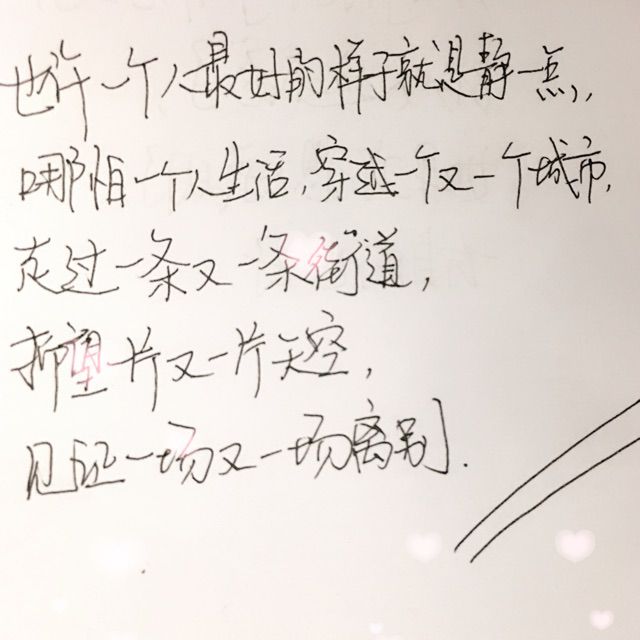 也许一个人最好的样子就是静一点,
哪怕一个人生活,穿越一个又一个城市,
走过一条又一条街道,
抑望一片又一片天空,
见证一场又一场离别.